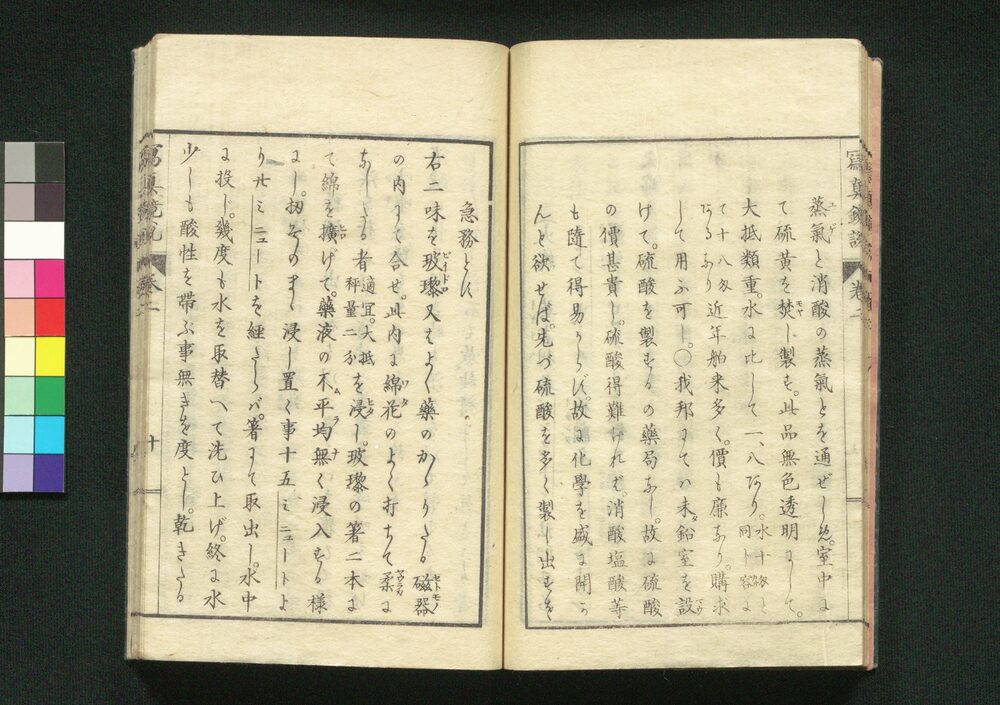 寫眞鏡説 卷二
蒸氣と消酸の蒸氣とを通ぜしめ。室中に
て硫黄を焚し製す。此品無色透明にして。
大抵類重。水に比して一、八あり。水十匁と同ト容に
て十八匁あるなり 近年舶来多く。價も廉なり。購求
して用ふ可し。〇我邦にてハ未鉛室を設
けて。硫酸を製するの藥局なし。故に硫酸
の價甚貴し。硫酸得難ければ。消酸塩酸等
も隨て得易からず。故に化學を盛に開か
んと欲せば。先づ硫酸を多く製し出すを
急務とす
右二味を玻瓈又はよく藥のかゝりたる磁器
の内にて合せ。此内に綿花のよく打ちて柔に
なしたる者適宜。大抵秤量二匁を浸し。玻瓈の箸二本に
て綿を擴げて。藥液の不平均無く浸入する様
にし。扨そのまゝ浸し置く事十五ミニュートよ
り廿ミニュートを經たらバ。箸にて取出し。水中
に投じ。幾度も水を取替へて洗ひ上げ。終に水
少しも酸性を帶ぶ事無きを度とし。乾きたる
寫眞鏡説 卷二 十